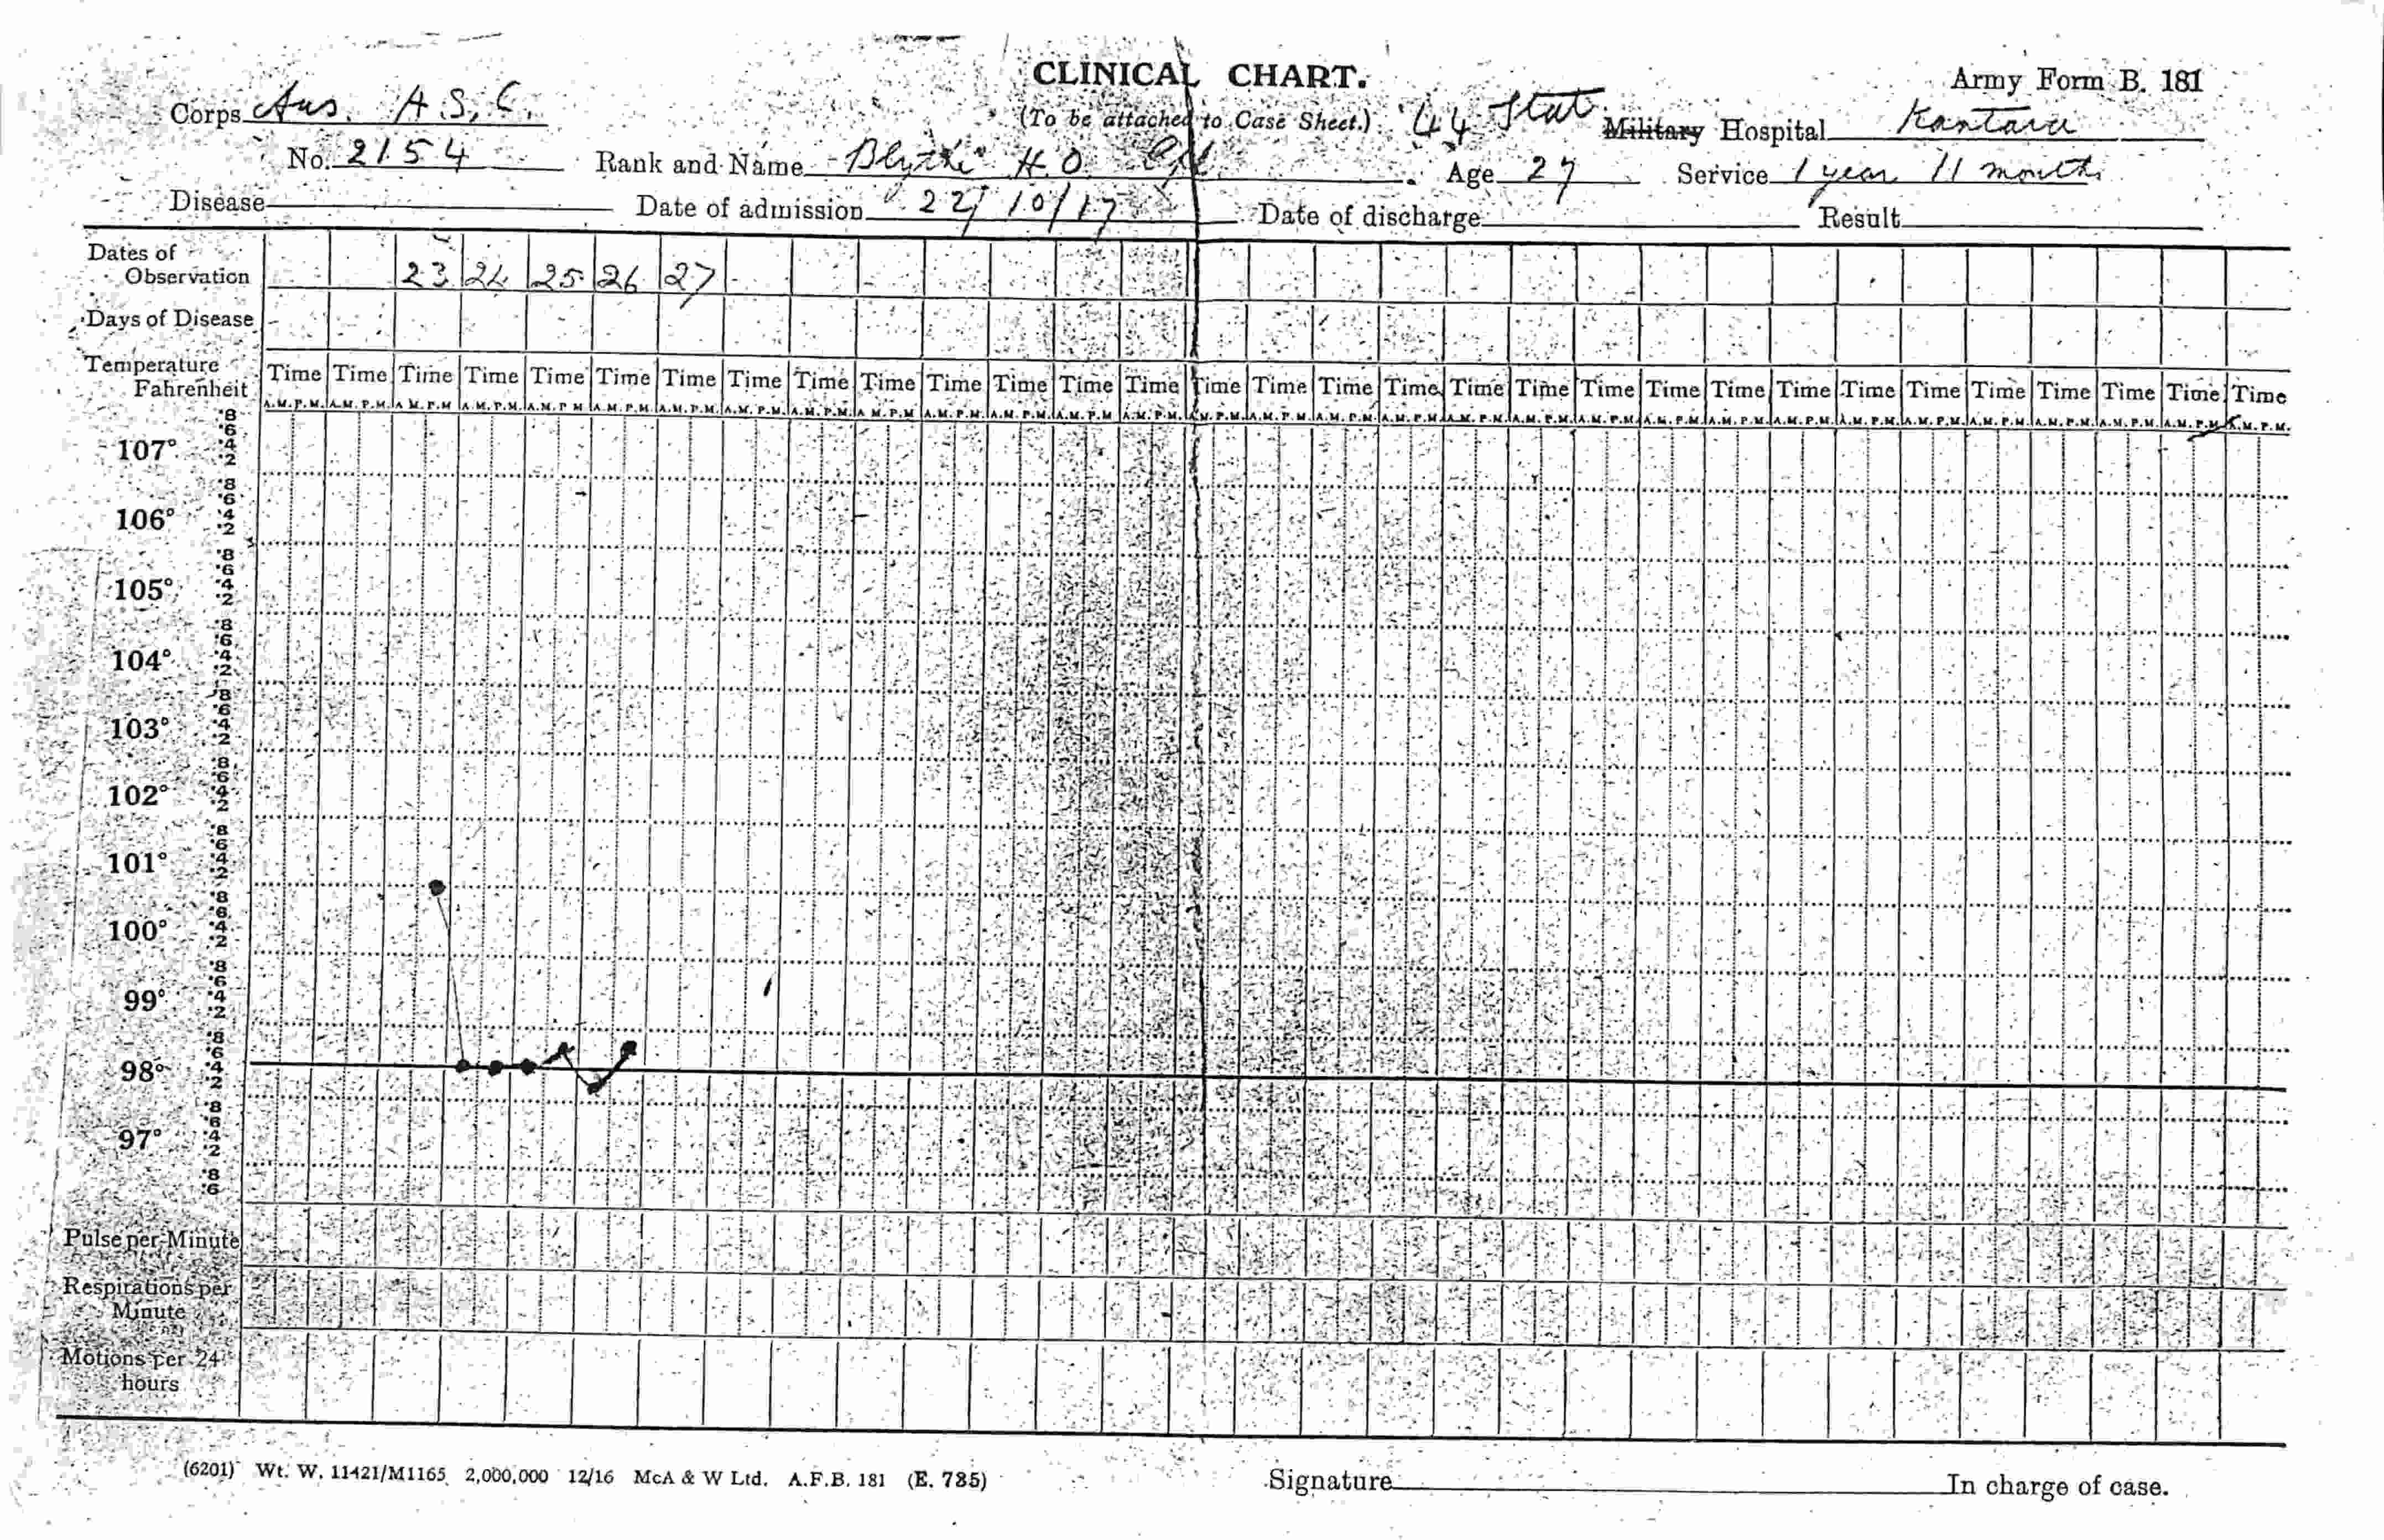 CLINICAL CHART.
Army Form B. 181
Corps Aus. A.S.C.
(To be attached to Case Sheet.)
44 Stat Military Hospital Kantara
No. 2154 Rank and Name Blythe H.O. Cpl. Age 27 Service 1 year 11 months
Disease Date of admission 22/10/17 Date of discharge Result
Dates of
Observation 23 24 25 26 27
Days of Disease
Temperature
Fahrenheit Time Time Time Time Time Time Time Time Time Time Time Time Time Time Time Time Time Time Time Time Time Time Time Time Time Time Time Time Time Time Time
A.M. P.M. A.M. P.M. A.M. P.M. A.M. P.M. A.M. P.M. A.M. P.M. A.M. P.M. A.M. P.M. A.M. P.M. A.M. P.M. A.M. P.M. A.M. P.M. A.M. P.M. A.M. P.M. A.M. P.M. A.M. P.M. A.M. P.M. A.M. P.M. A.M. P.M. A.M. P.M. A.M. P.M. A.M. P.M. A.M. P.M. A.M. P.M. A.M. P.M. A.M. P.M. A.M. P.M. A.M. P.M. A.M. P.M. A.M. P.M. A.M. P.M.
107° ·8 ·6 ·4 ·2
106° ·8 ·6 ·4 ·2
105° ·8 ·6 ·4 ·2
104° ·8 ·6 ·4 ·2
103° ·8 ·6 ·4 ·2
102° ·8 ·6 ·4 ·2
101° ·8 ·6 ·4 ·2
100° ·8 ·6 ·4 ·2
99° ·8 ·6 ·4 ·2
98° ·8 ·6 ·4 ·2
97° ·8 ·6 ·4 ·2
·8 ·6
Pulse per Minute
Respirations per
Minute
Motions per 24
hours
(6201) Wt. W. 11421/M1165 2,000,000 12/16 McA & W Ltd. A.F.B. 181 (E. 785)
Signature In charge of case.